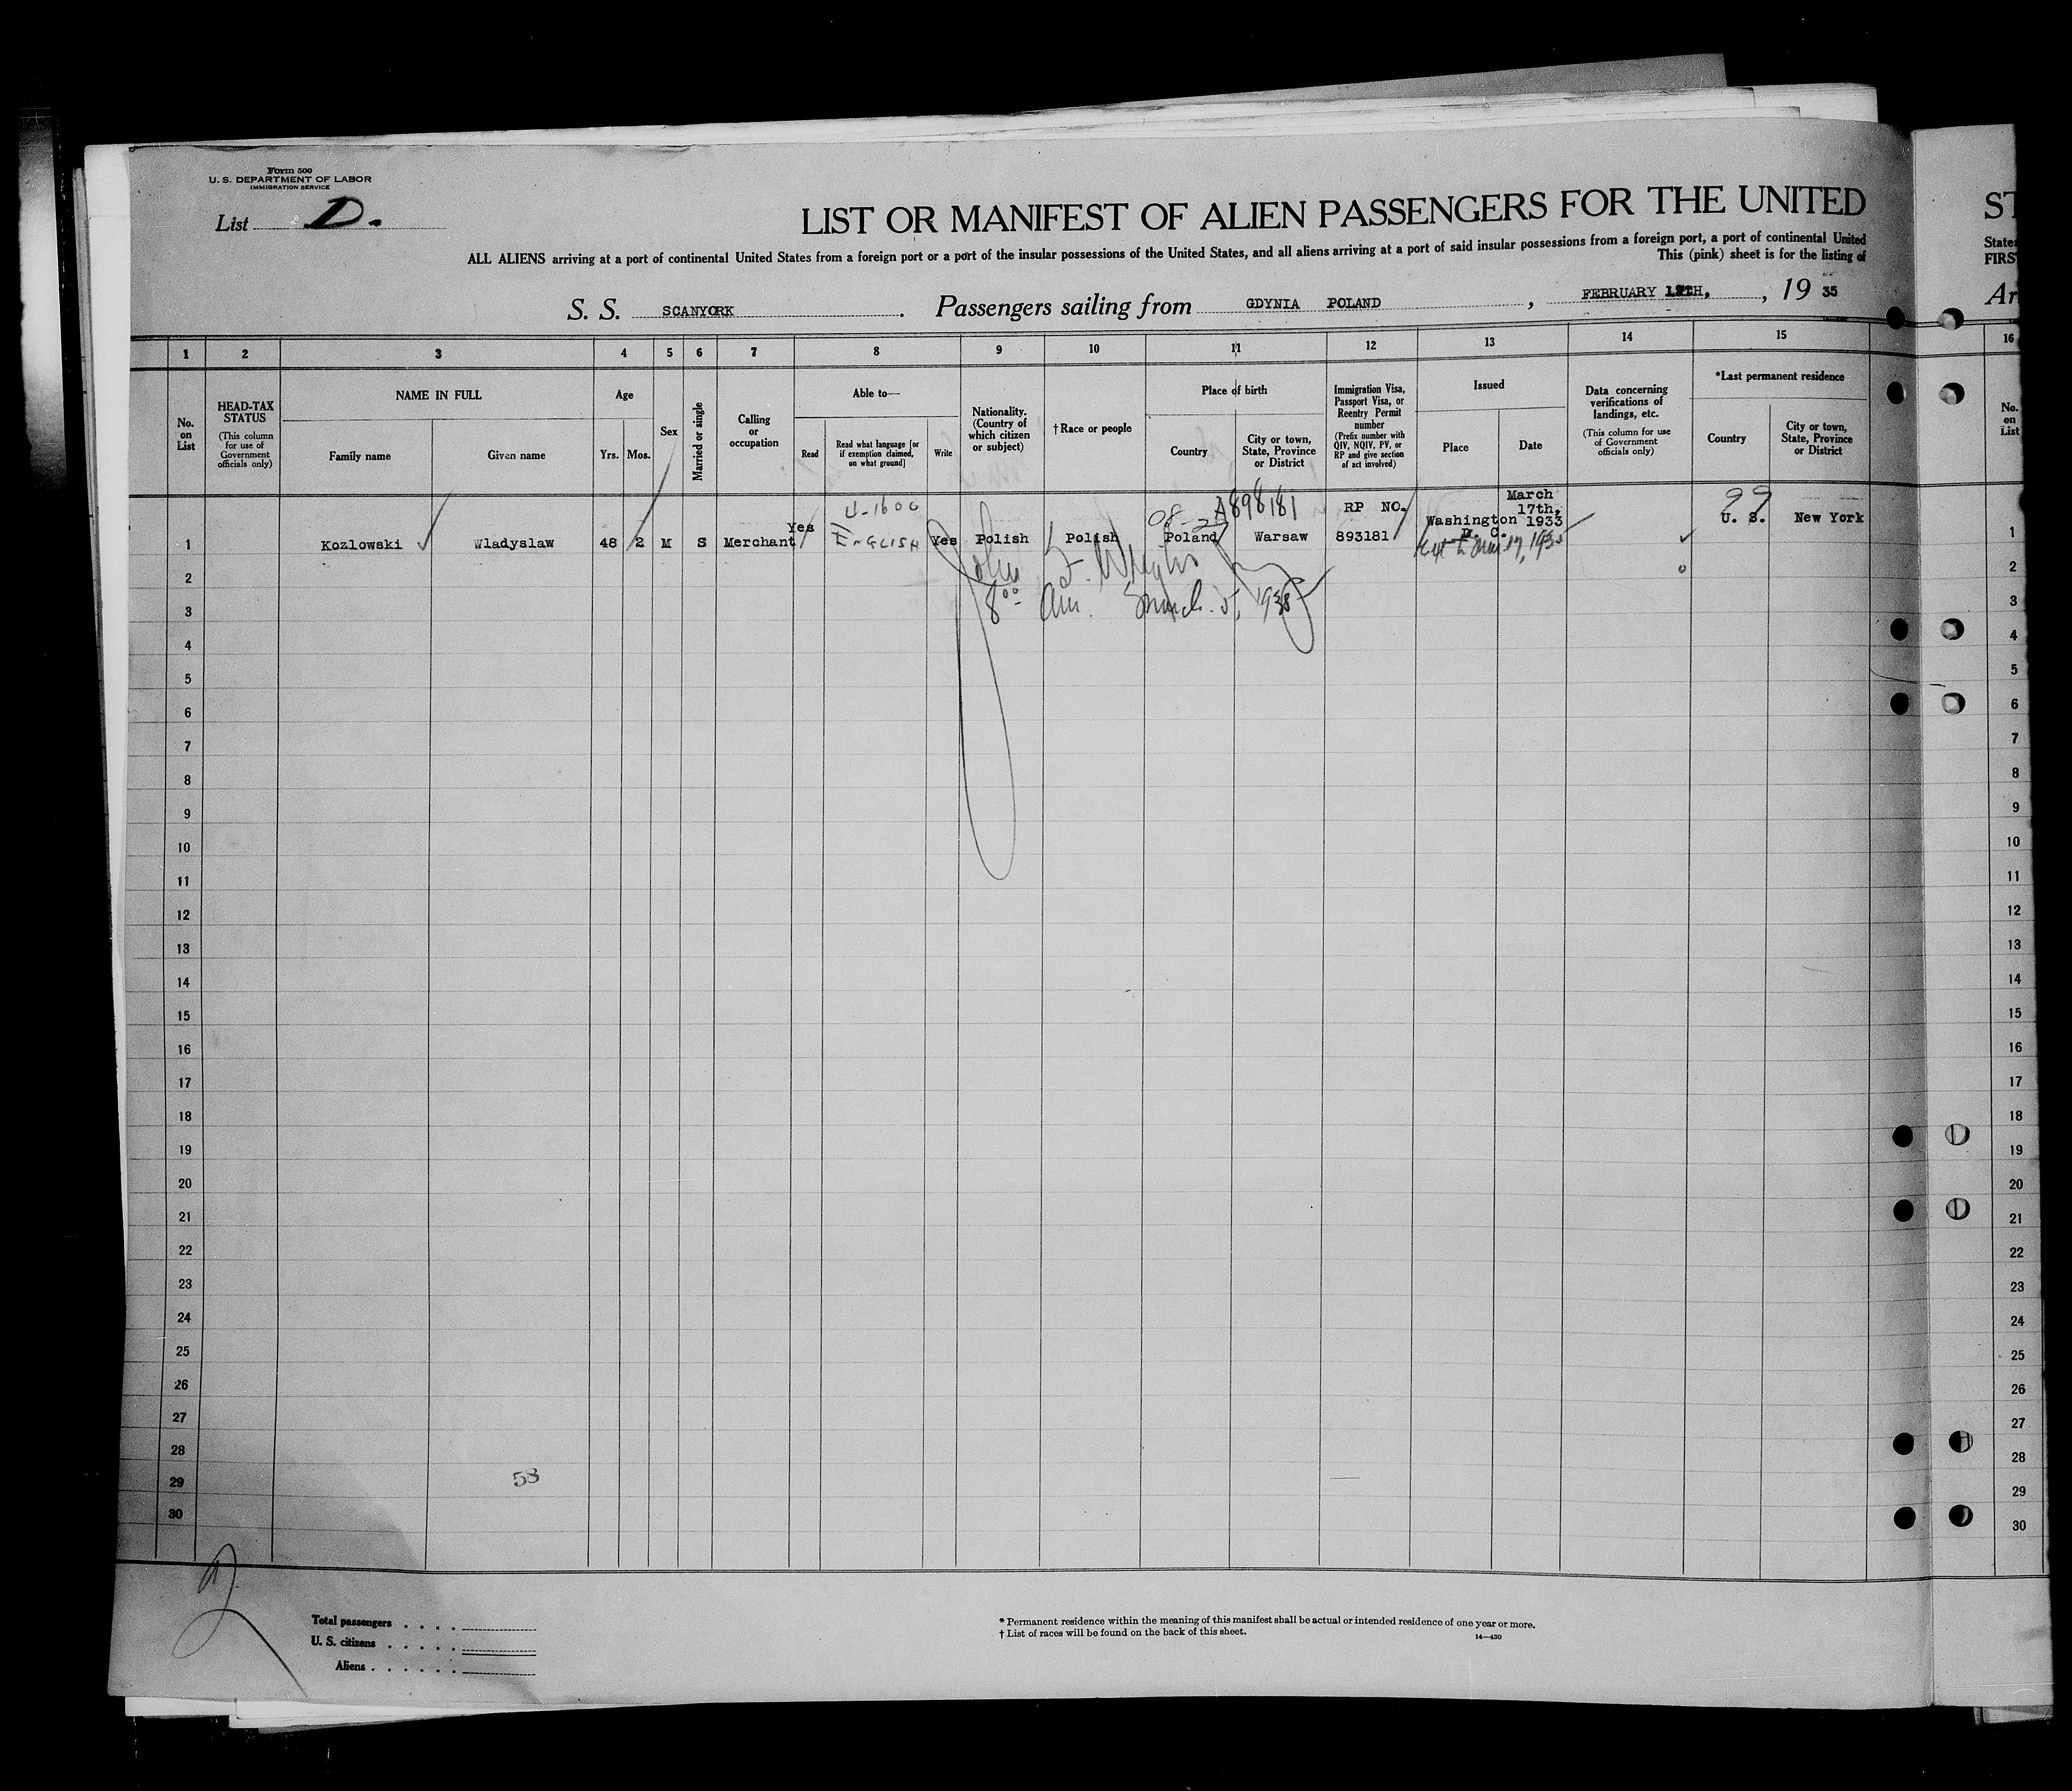 Form 500
U. S. DEPARTMENT OF LABOR
IMMIGRATION SERVICE
List D.
LIST OR MANIFEST OF ALIEN PASSENGERS FOR THE UNITED
ST
ALL ALIENS arriving at a port of continental United States from a foreign port or a port of the insular possessions of the United States, and all aliens arriving at a port of said insular possessions from a foreign port, a port of continental United
States
This (pink) sheet is for the listing of
FIRS
S. S. SCANYORK. Passengers sailing from GDYNIA POLAND, FEBRUARY TH, , 19 35
Ar
1 2 3 4 5 6 7 8 9 10 11 12 13 14 15 16
No. on List
HEAD-TAX STATUS
(This column for use of Government officials only)
NAME IN FULL
Family name
Given name
Age
Yrs.
Mos.
Sex
Married or single
Calling or occupation
Able to—
Read
Read what language [or if exemption claimed, on what ground]
Write
Nationality. (Country of which citizen or subject)
†Race or people
Place of birth
Country
City or town, State, Province or District
Immigration Visa, Passport Visa, or Reentry Permit number
(Prefix number with QIV, NQIV, PV, or RP and give section of act involved)
Issued
Place
Date
Data concerning verifications of landings, etc.
(This column for use of Government officials only)
*Last permanent residence
Country
City or town, State, Province or District
No. on List
4-1600
A898181
99
March
RP NO.
17th,
Washington 1933
U. S. New York
1 Kozlowski Wladyslaw 48 2 M S Merchant Yes ENGLISH Yes Polish Polish Poland Warsaw 893181 D. C. 1
Ext to Mar. 17, 1935
John F. Wright
8⁰⁰ Am. March 5, 1935
2 2
3 3
4 4
5 5
6 6
7 7
8 8
9 9
10 10
11 11
12 12
13 13
14 14
15 15
16 16
17 17
18 18
19 19
20 20
21 21
22 22
23 23
24 24
25 25
26 26
27 27
28 28
29 29
30 30
58
Total passengers . . . .
U. S. citizens . . . . .
Aliens . . . . . .
* Permanent residence within the meaning of this manifest shall be actual or intended residence of one year or more.
† List of races will be found on the back of this sheet.
14—430